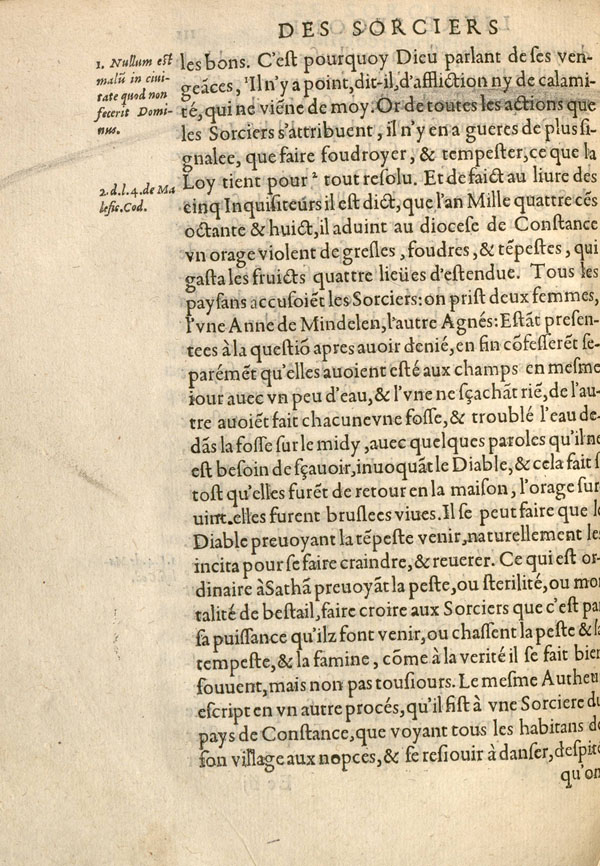 DES SORCIERS
1. Nullum est
malũ in ciui-
tate quod non
fecerit Domi-
nus.
2. d.l. 4. de Ma
lefic. Cod.
les bons. C'est pourquoy Dieu parlant de ses ven-
geãces, ¹Il n'y a point, dit-il, d'affliction ny de calami-
té, qui ne viẽne de moy. Or de toutes les actions que
les Sorciers s'attribuent, il n'y en a gueres de plus si-
gnalee, que faire foudroyer, & tempester, ce que la
Loy tient pour ² tout resolu. Et de faict au liure des
cinq Inquisiteurs il est dict, que l'an Mille quattre cẽs
octante & huict, il aduint au diocese de Constance
vn orage violent de gresles, foudres, & tẽpestes, qui
gasta les fruicts quattre lieües d'estendue. Tous les
paysans accusoiẽt les Sorciers: on prist deux femmes,
l'vne Anne de Mindelen, l'autre Agnés: Estãt presen-
tees à la questiõ apres auoir denié, en fin cõfesserẽt se-
parémẽt qu'elles auoient esté aux champs en mesme
iour auec vn peu d'eau, & l'vne ne sçachãt riẽ, de l'au-
tre auoiẽt fait chacune vne fosse, & troublé l'eau de-
dãs la fosse sur le midy, auec quelques paroles qu'il ne
est besoin de sçauoir, inuoquãt le Diable, & cela fait s
tost qu'elles furẽt de retour en la maison, l'orage sur
uint. elles furent bruslees viues. Il se peut faire que l
Diable preuoyant la tẽpeste venir, naturellement le
incita pour se faire craindre, & reuerer. Ce qui est or-
dinaire à Sathã preuoyãt la peste, ou sterilité, ou mo
talité de bestail, faire croire aux Sorciers que c'est pa
sa puissance qu'ilz font venir, ou chassent la peste & la
tempeste, & la famine, cõme à la verité il se fait bien
souuent, mais non pas tousiours. Le mesme Autheu
escript en vn autre procés, qu'il fist à vne Sorciere du
pays de Constance, que voyant tous les habitans de
son village aux nopces, & se resiouir à danser, despite
qu'on